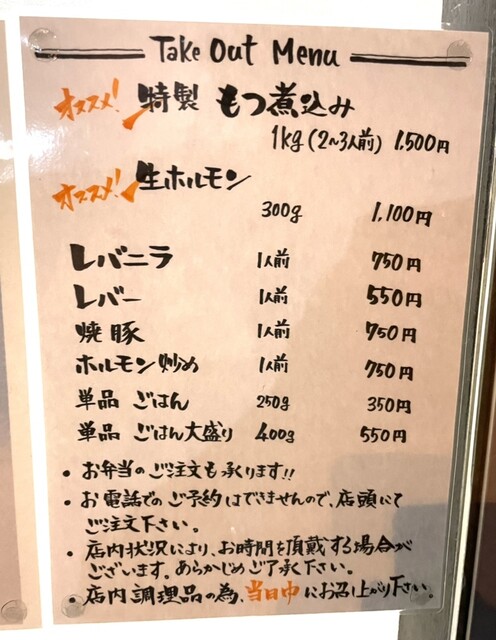 Take Out Menu
オススメ! 特製 もつ煮込み
1kg (2~3人前) 1.500円
オススメ! 生ホルモン
300g 1,100円
レバニラ 1人前 750円
レバー 1人前 550円
焼豚 1人前 750円
ホルモン炒め 1人前 750円
単品 ごはん 250g 350円
単品 ごはん大盛り 400g 550円
・お弁当のご注文も承ります!!
・お電話でのご予約はできませんので、店頭にて
ご注文下さい。
・店内状況により、お時間を頂戴する場合が
ございます。あらかじめご了承下さい。
・店内調理品の為、当日中にお召し上がり下さい。